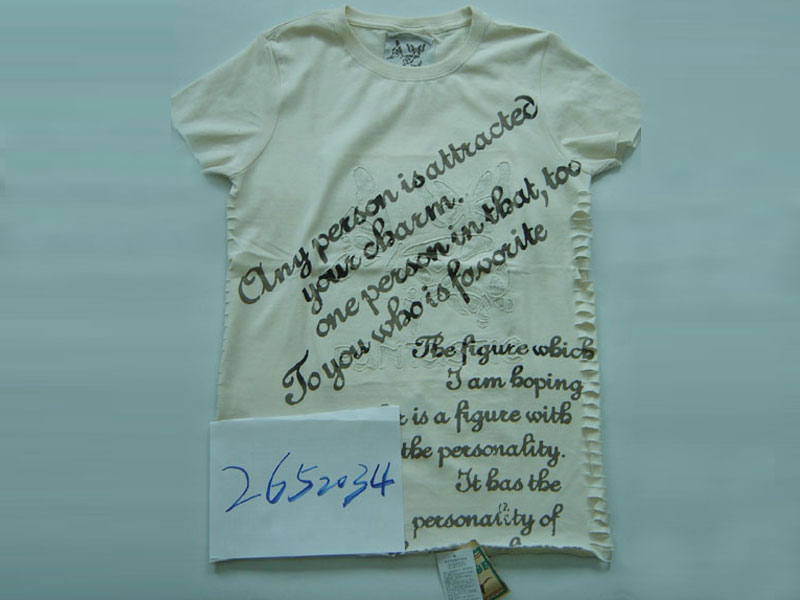 Any person is attracted
your charm.
one person in that, too
To you who is favorite
The figure which
I am hoping
is a figure with
the personality.
It has the
personality of
2652034